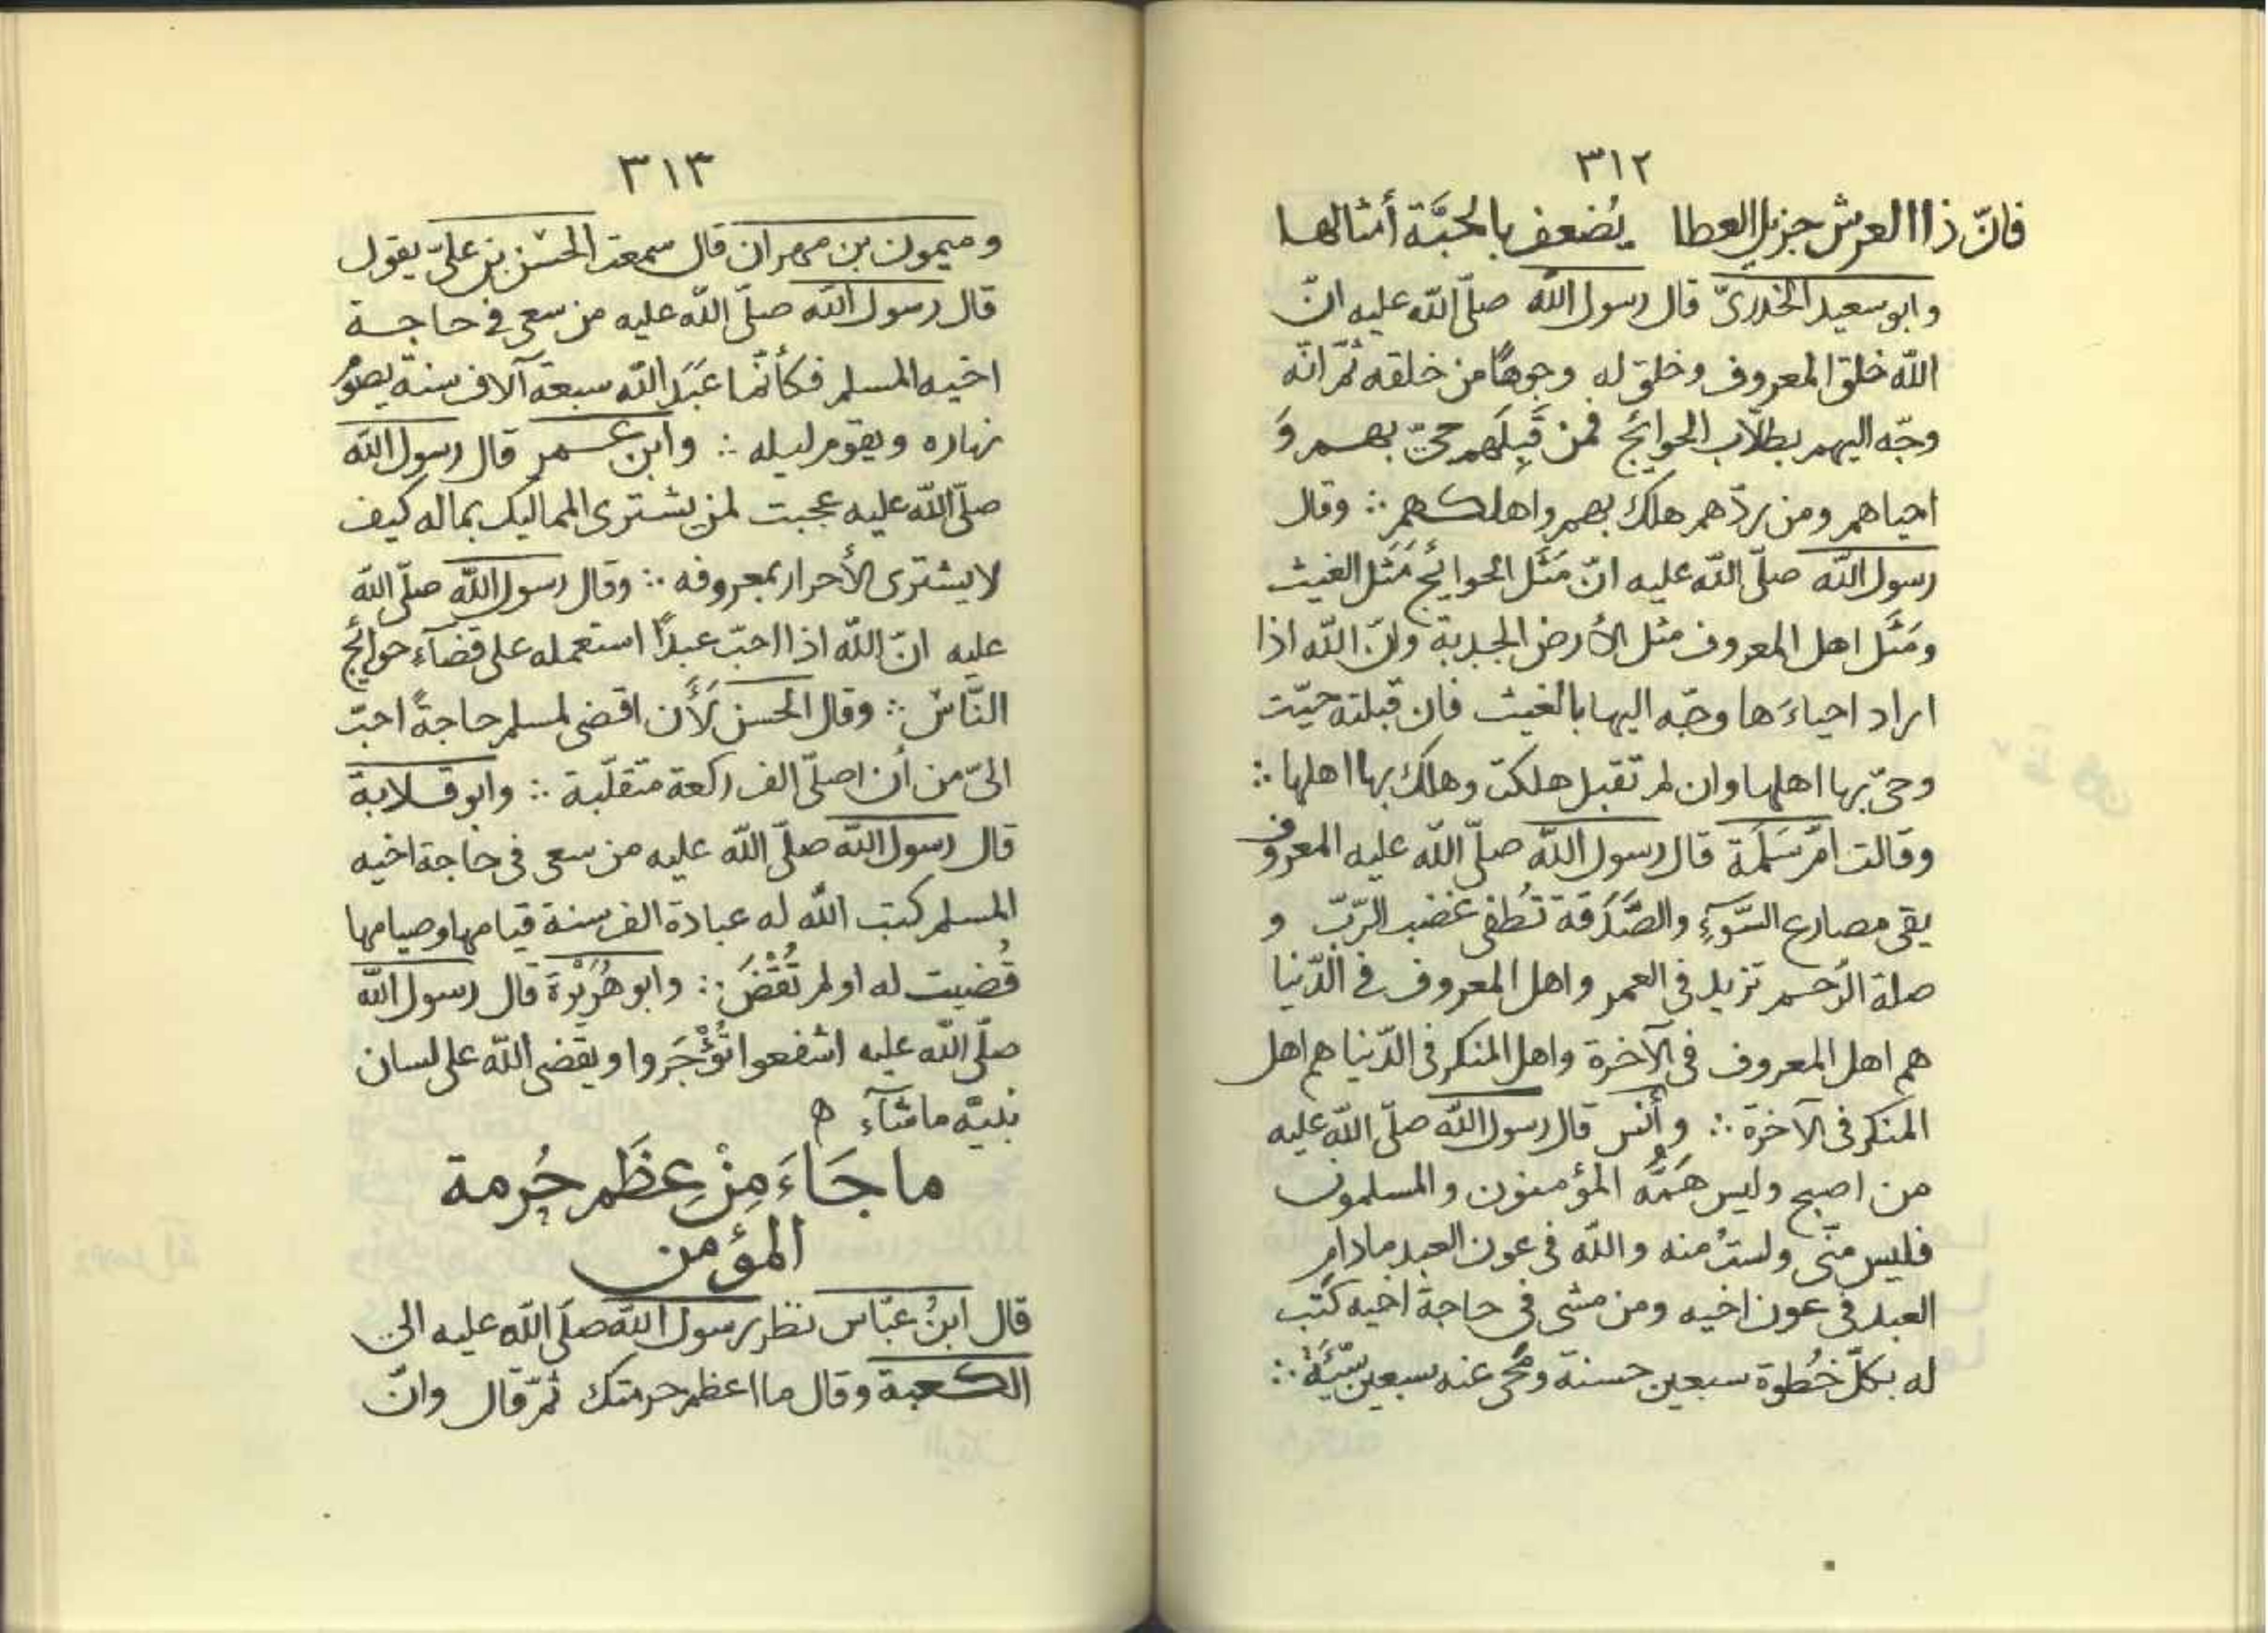 ٣١٢
فانّ ذا العرش جزيل العطا يُضعف بالحبَّة أمثالها
وابو سعيد الخدرىّ قال رسول الله صلّى الله عليه انّ
الله خلق المعروف وخلق له وجوهًا من خلقه ثمّ انّه
وجّه اليهم بطلّاب الحوائج فمن قَبِلَهم حىّ بهم وَ
احياهم ومن ردّهم هلك بهم واهلكهم ∴ وقال
رسول الله صلّى الله عليه انّ مَثَل الحوائج مَثَل الغيث
ومَثَل اهل المعروف مثل الأرض الجدبة وانّ الله اذا
اراد احياءَها وجّه اليها بالغيث فان قبلته حيّت
وحىّ بها اهلها وان لم تقبل هلكت وهلك بها اهلها ∴
وقالت امّ سَلَمَة قال رسول الله صلّى الله عليه المعروف
يقى مصارع السَّوءِ والصَّدَقة تُطفى غضب الرّبّ و
صلة الرّحم تزيد فى العمر واهل المعروف فى الدّنيا
هم اهل المعروف فى الآخرة واهل المنكر فى الدّنيا هم اهل
المنكر فى الآخرة ∴ وأنس قال رسول الله صلّى الله عليه
من اصبح وليس هَمُّه المؤمنون والمسلمون
فليس منّى ولستُ منه والله فى عون العبد مادام
العبد فى عون اخيه ومن مشى فى حاجة اخيه كُتب
له بكلّ خُطوة سبعين حسنة ومُحى عنه سبعين سَيّئَة ∴
٣١٣
وميمون بن مهران قال سمعت الحسن بن علىّ يقول
قال رسول الله صلّى الله عليه من سعى فى حاجة
اخيه المسلم فكأنّما عَبَدَ الله سبعة آلاف سنة يصوُم
نهاره ويقوم ليله ∴ وابن عمر قال رسول الله
صلّى الله عليه عجبت لمن يشترى المماليك بماله كيف
لا يشترى الأحرار بمعروفه ∴ وقال رسول الله صلّى الله
عليه انّ الله اذا احبّ عبدًا استعمله على قضآء حوائج
النّاس ∴ وقال الحسن لَأَن اقضى لمسلم حاجةً احبّ
الىّ من أن اصلّى الف ركعة متقلّبة ∴ وابو قلابة
قال رسول الله صلّى الله عليه من سعى فى حاجة اخيه
المسلم كتب الله له عبادة الف سنة قيامها وصيامها
قُضيت له او لم تُقْضَ ∴ وابو هُرَيْرَة قال رسول الله
صلّى الله عليه اشفعوا تُؤْجَروا ويقضى الله على لسان
نبيّه ماشآء ه
ما جَاءَ مِنْ عِظَم حُرمة
المؤمن
قال ابنُ عبّاس نظر رسول الله صلّى الله عليه الى
الكعبة وقال ما اعظم حرمتك ثمّ قال وانّ